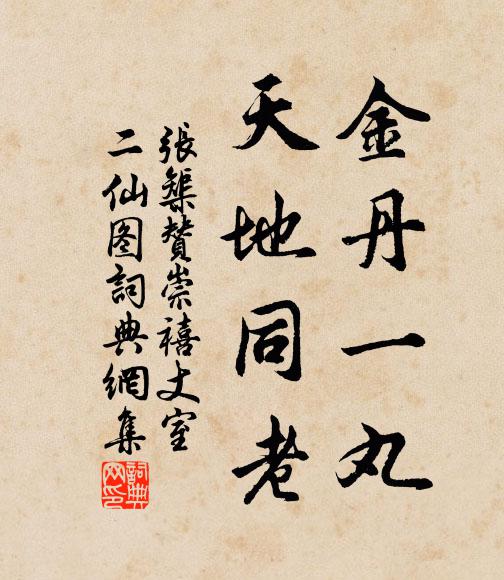 金丹一丸
天地同老
張榘贊崇禧丈室
二仙图詞典網集
詞典网印